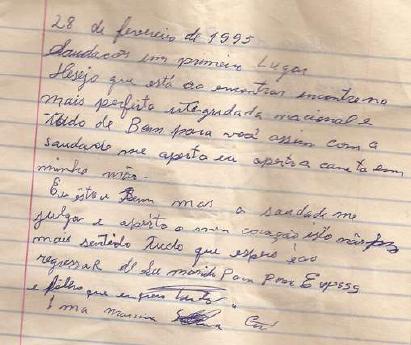 28 de fevereiro de 1995
Saudacos em primeiro Lugar
Desejo que está ao encontrar encontre no
mais perfeito integridada nacional e
tudo de Bom para você assim com a
saudade me aperta eu aperto a caneta em
minha mão.
Eu estou Bem mas a saudade me
julgar e aperta o meu coração isto não faz
mais sentido tudo que espero é ao
regressaR de Seu marido Para
e que